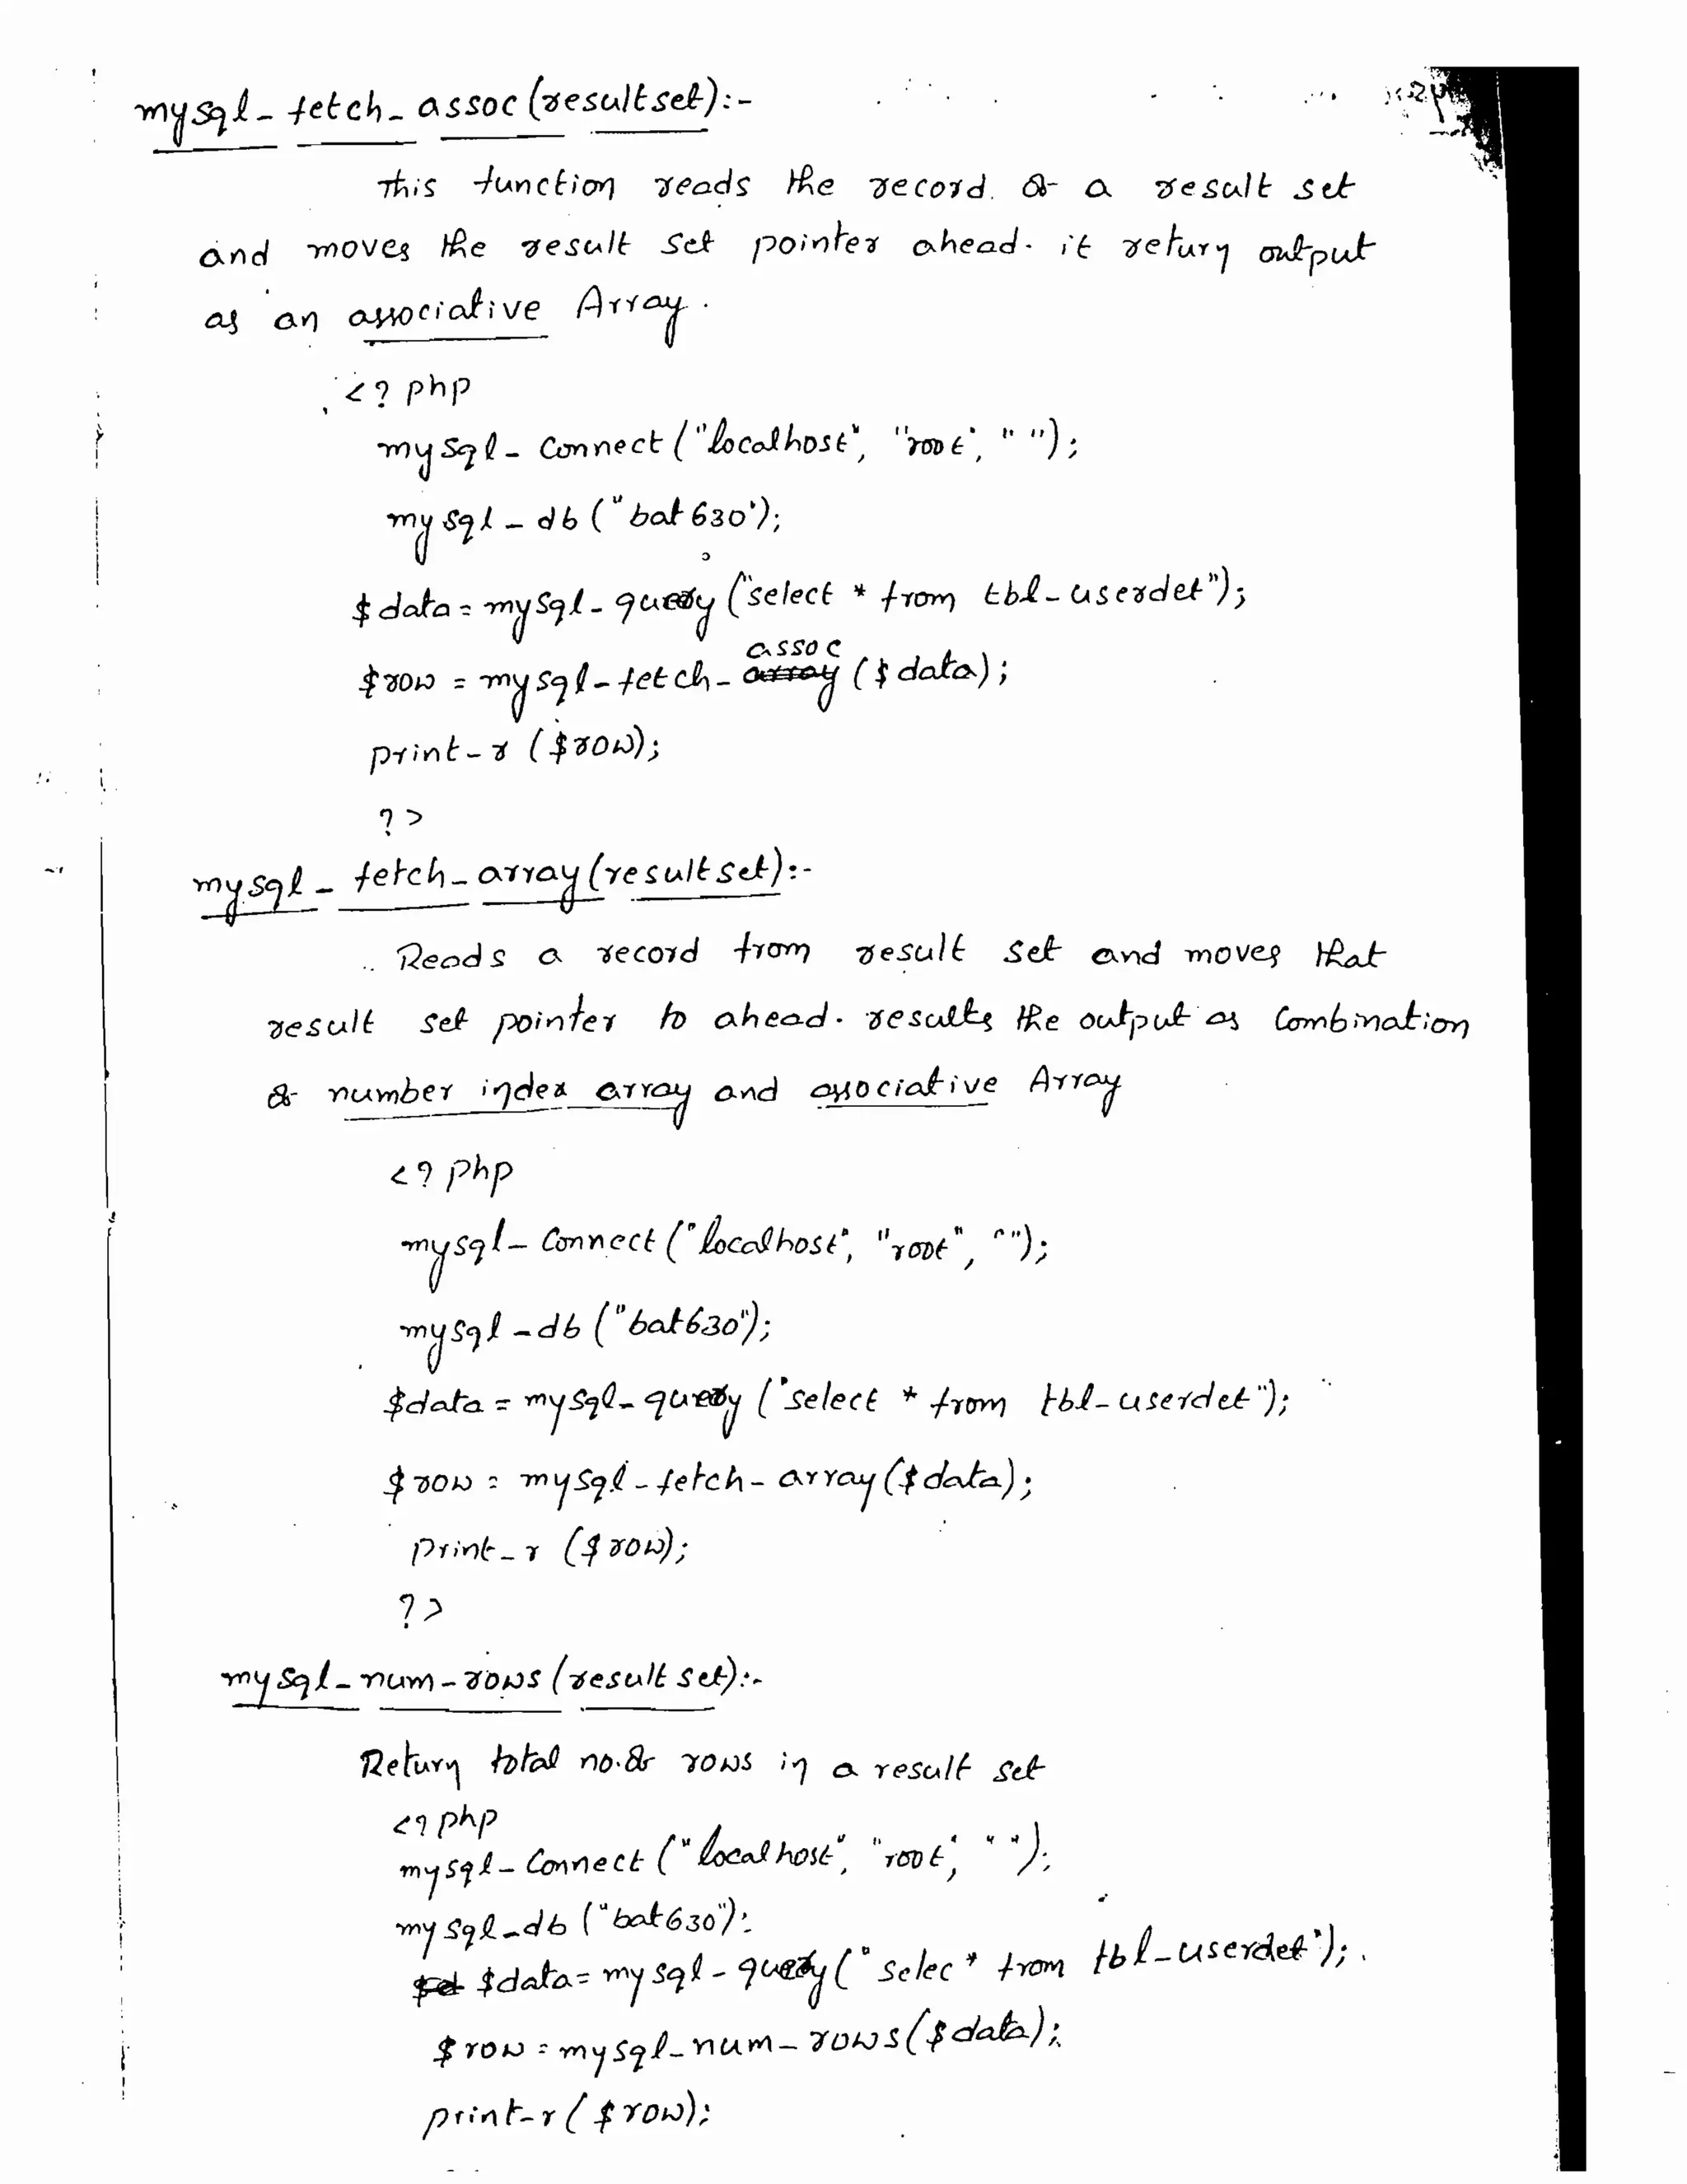 mysql_fetch_assoc(resultset):-
This function reads the record of a result set
and moves the result set pointer ahead. it return output
as an associative Array.
<? php
mysql_connect("localhost", "root", " ");
mysql_db("bat630");
$data = mysql_query("select * from tbl_userdet");
assoc
$row = mysql_fetch_array($data);
print_r ($row);
?>
mysql_fetch_array(resultset):-
Reads a record from result set and moves that
result set pointer to ahead. results the output as Combination
of number index array and associative Array
<? php
mysql_connect("localhost", "root", "");
mysql_db("bat630");
$data = mysql_query("select * from tbl_userdet");
$row = mysql_fetch_array($data);
print_r ($row);
?>
mysql_num_rows(result set):-
Return total no.of rows in a result set
<? php
mysql_connect("localhost", "root", " ");
mysql_db("bat630");
$data = mysql_query("selec * from tbl_userdet");
$row = mysql_num_rows($data);
print_r($row);